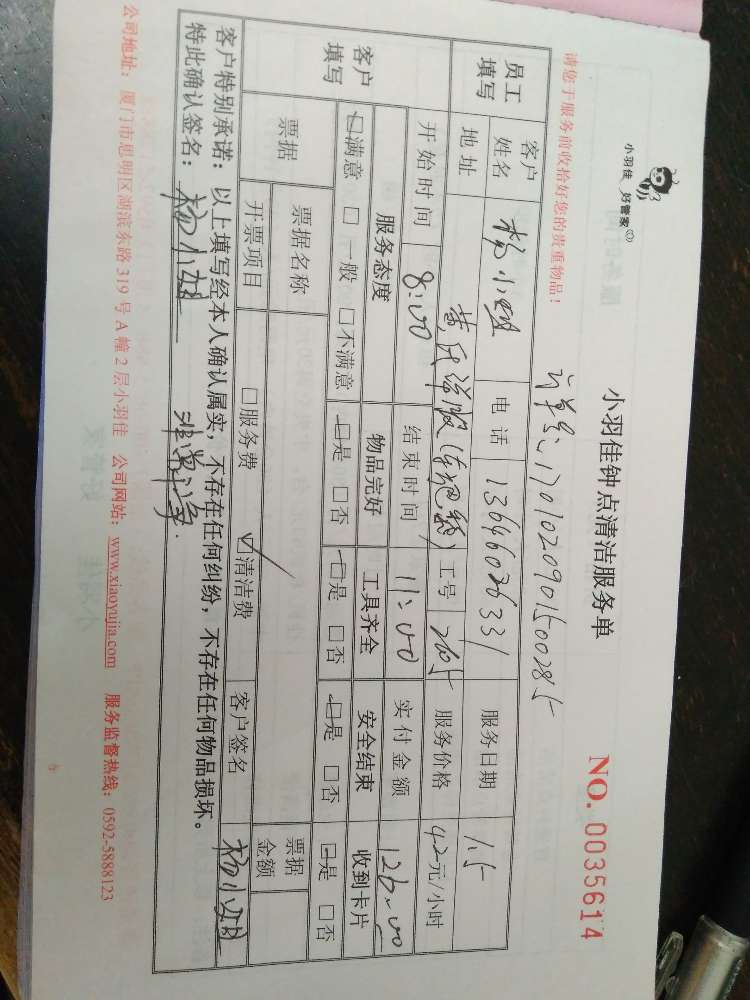 小羽佳 好管家
小羽佳钟点清洁服务单
NO. 0035614
请您于服务前收拾好您的贵重物品！
订单号 1701020901500285
员工填写 客户姓名 杨小姐 电话 13646026331 服务日期 1.5
地址 工号 265 服务价格 42元/小时
开始时间 8:00 结束时间 11:00 实付金额 126.00
客户填写 服务态度 物品完好 工具齐全 安全结束 收到卡片
☑满意 □一般 □不满意 ☑是 □否 ☑是 □否 ☑是 □否 ☑是 □否
票据 票据名称 票据金额
开票项目 □服务费 ☑清洁费 客户签名 杨小姐
客户特别承诺：以上填写经本人确认属实，不存在任何纠纷，不存在任何物品损坏。
特此确认签名：杨小姐 非常干净.
公司地址：厦门市思明区湖滨东路319号A幢2层小羽佳 公司网站：www.xiaoyujia.com 服务监督热线：0592-5888123